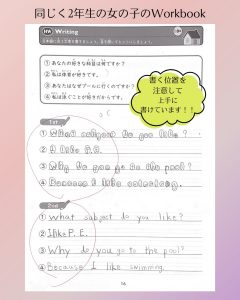 同じく2年生の女の子のWorkbook
HW Writing
①あなたの好きな科目は何ですか？
②私は体育が好きです。
③あなたはなぜプールに行くのですか？
④私は泳ぐことが好きだからです。
書く位置を
注意して
上手に
書けています！！
1st
① What subject do you like?
② I like P.E.
③ Why do you go to the pool?
④ Because I like swimming.
2nd
① What subject do you like?
② I like P.E.
③ Why do you go to the pool?
④ Because I like swimming.